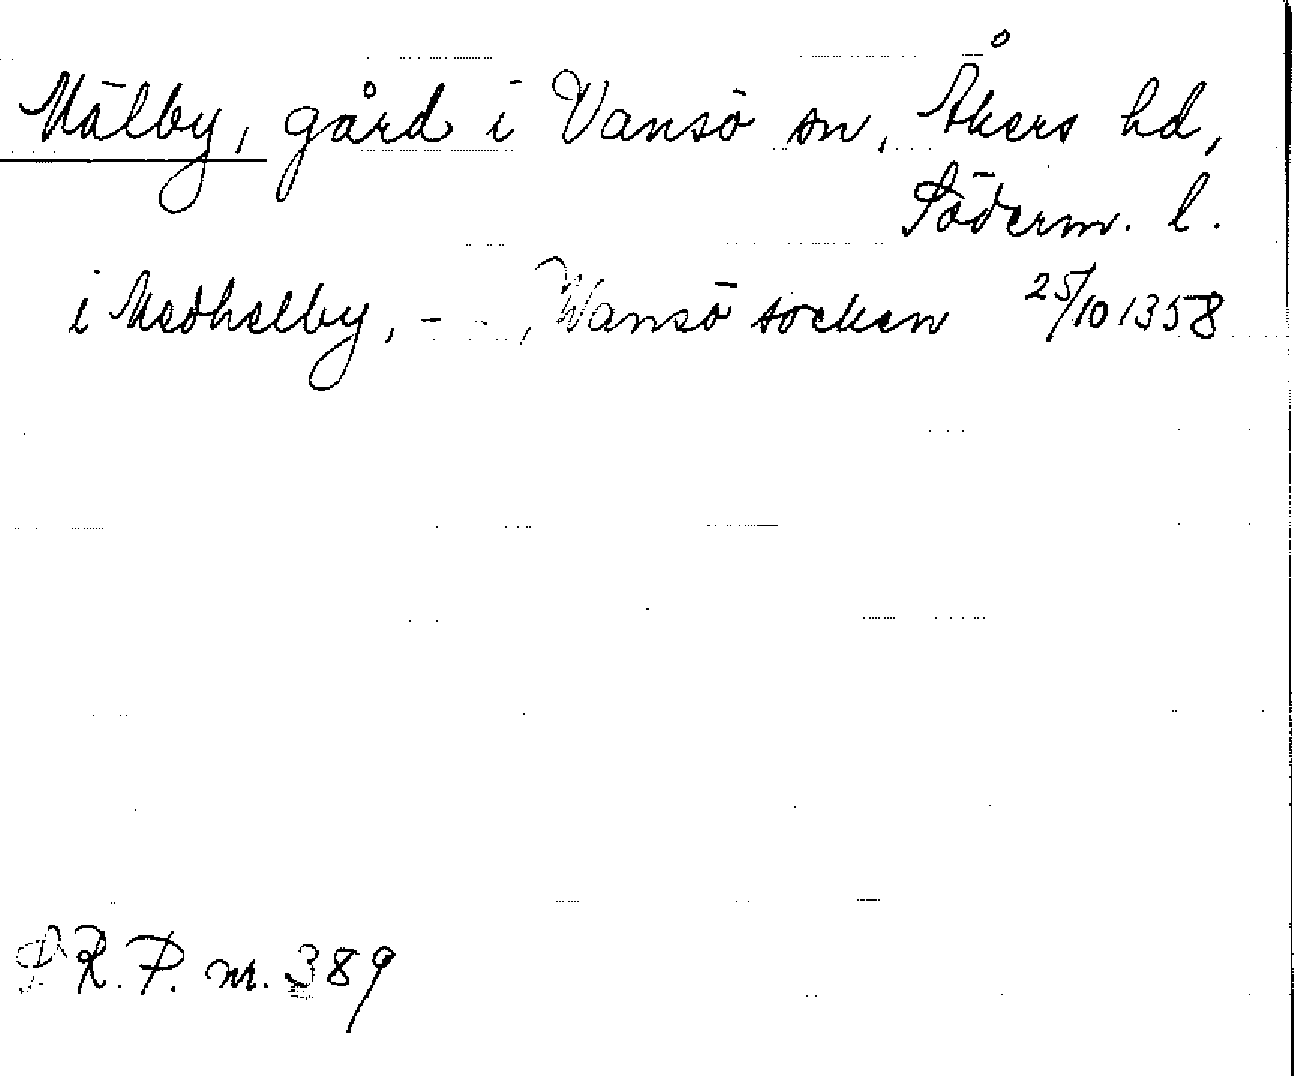 Mälby, gård i Vansö sn, Åkers hd,
Söderm. l.
i Medhelby, - - , Wansö socken 25/10 1358
S.R.P. nr. 389